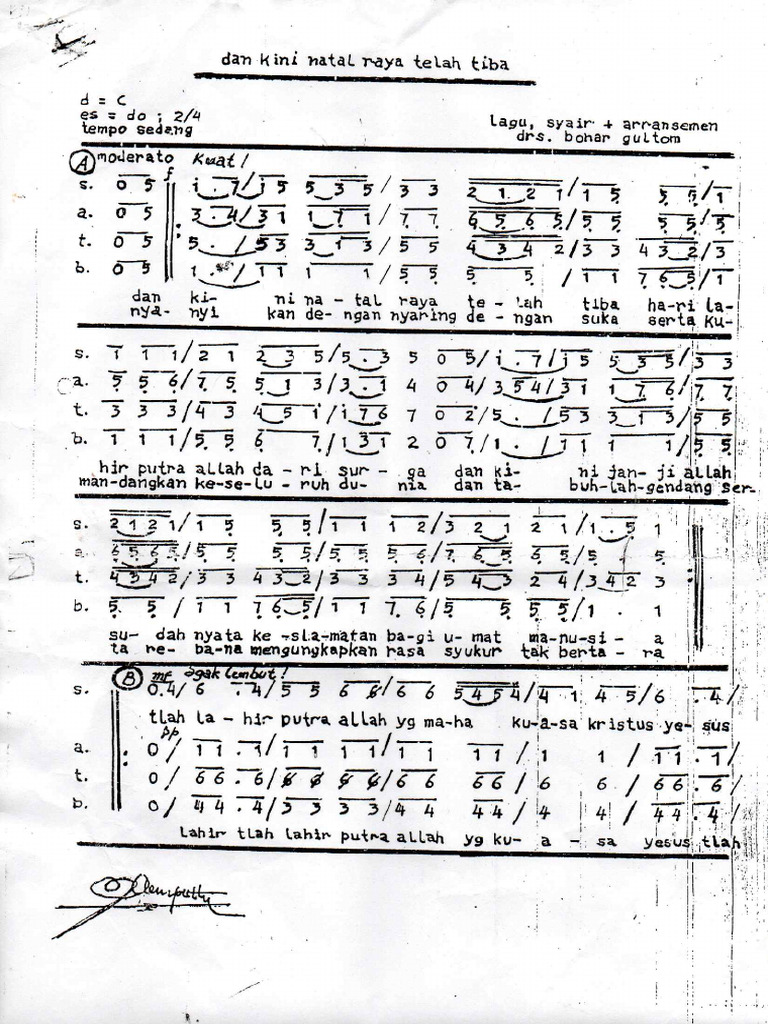 dan kini natal raya telah tiba
d = C
es = do ; 2/4
tempo sedang
lagu, syair + arransemen
drs. bohar gultom
A moderato Kuat!
f
s. 0 5 1 . 7 / 1 5 5 3 5 / 3 3 2 1 2 1 / 1 5 5 5 / 1
a. 0 5 3 . 4 / 3 1 1 7 1 / 7 7 6 5 6 5 / 5 5 5 5 / 5
t. 0 5 5 . / 5 3 3 1 3 / 5 5 4 3 4 2 / 3 3 4 3 2 / 3
b. 0 5 1 . / 1 1 1 1 / 5 5 5 5 / 1 1 7 6 5 / 1
dan ki- ni na - tal raya te - lah tiba ha-ri la-
nya- nyi kan de- ngan nyaring de - ngan suka serta ku-
s. 1 1 1 / 2 1 2 3 5 / 5 . 3 5 0 5 / 1 . 7 / 1 5 5 3 5 / 3 3
a. 5 5 6 / 7 5 5 1 3 / 3 . 1 4 0 4 / 3 5 4 / 3 1 1 7 6 / 7 7
t. 3 3 3 / 4 3 4 5 1 / 1 7 6 7 0 2 / 5 . / 5 3 3 1 3 / 5 5
b. 1 1 1 / 5 5 6 7 / 1 3 1 2 0 7 / 1 . / 1 1 1 1 / 5 5
hir putra allah da - ri sur - ga dan ki- ni jan- ji allah
man-dangkan ke-se-lu - ruh du - nia dan ta- buh-lah-gendang ser-
s. 2 1 2 1 / 1 5 5 5 / 1 1 1 2 / 3 2 1 2 1 / 1 . 5 1
a. 6 5 6 5 / 5 5 5 5 / 5 5 5 6 / 7 6 5 6 5 / 5 5
t. 4 3 4 2 / 3 3 4 3 2 / 3 3 3 4 / 5 4 3 2 4 / 3 4 2 3
b. 5 5 / 1 1 7 6 5 / 1 1 7 6 / 5 5 5 5 / 1 . 1
su- dah nyata ke -sla-matan ba-gi u- mat ma-nu-si - a
ta re - ba-na mengungkapkan rasa syukur tak berta - ra
B mf agak lembut!
s. 0.4 / 6 .4 / 5 5 6 6 / 6 6 5 4 5 4 / 4 1 4 5 / 6 .4 /
tlah la - hir putra allah yg ma-ha ku-a-sa kristus ye- sus
pp
a. 0 / 1 1 . 1 / 1 1 1 1 / 1 1 1 1 / 1 1 / 1 1 . 1 /
t. 0 / 6 6 . 6 / 6 6 6 6 / 6 6 6 6 / 6 6 / 6 6 . 6 /
b. 0 / 4 4 . 4 / 3 3 3 3 / 4 4 4 4 / 4 4 / 4 4 . 4 /
lahir tlah lahir putra allah yg ku- a - sa yesus tlah